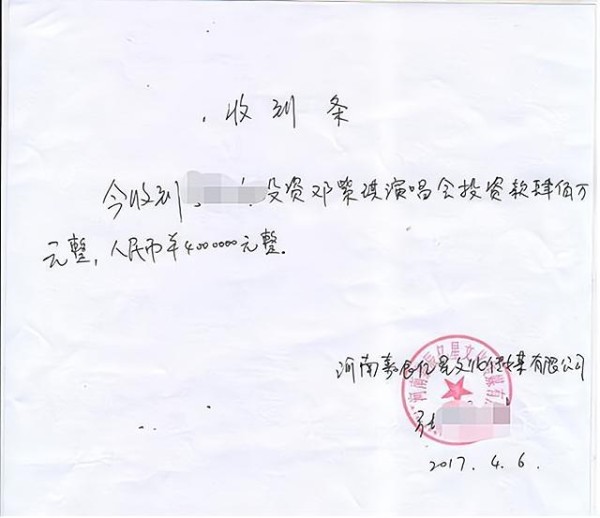 收到条
今收到 投资邓紫琪演唱会投资款肆佰万
元整，人民币￥4000000元整.
河南嘉辰亿星文化传媒有限公司
张
2017.4.6.